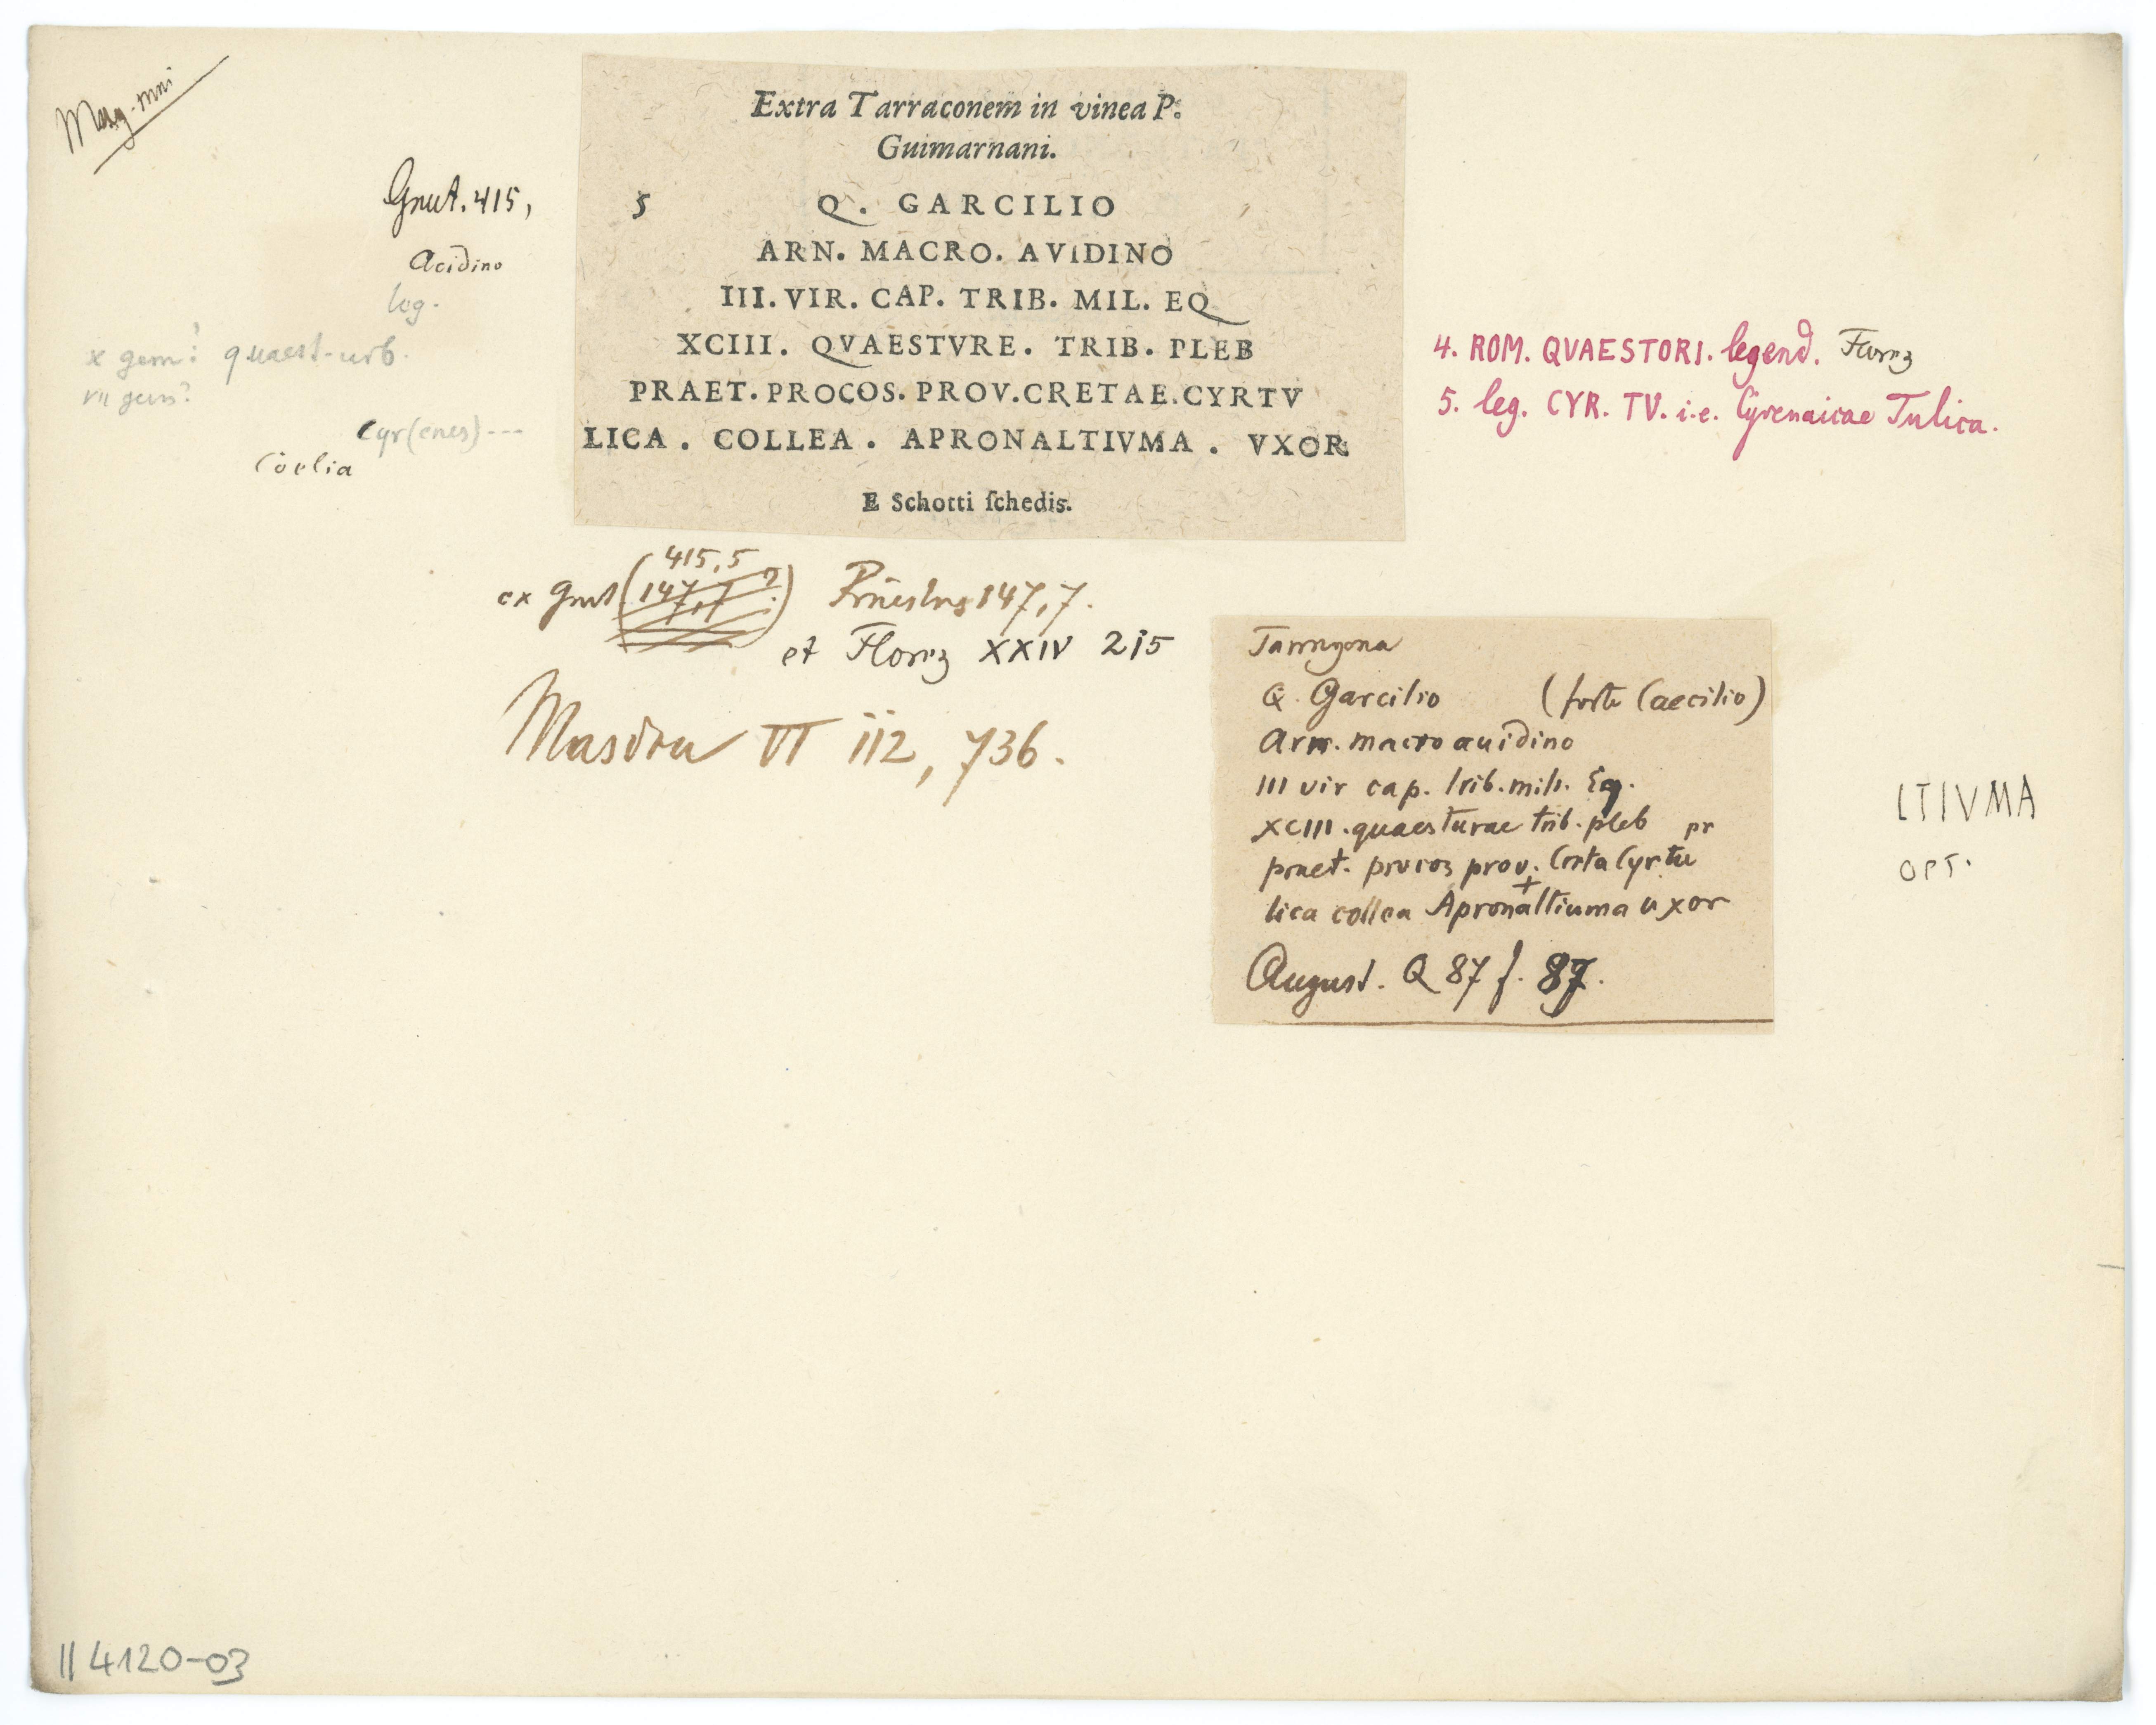 Mag. mni
Grut. 415,
Acidino
leg.
x gem? quaest. urb.
VII gem?
Cyr(enes) ---
Coelia
Extra Tarraconem in vinea P.
Guimarnani.
5 Q. GARCILIO
ARN. MACRO. AVIDINO
III. VIR. CAP. TRIB. MIL. EQ
XCIII. QVAESTVRE. TRIB. PLEB
PRAET. PROCOS. PROV. CRETAE. CYRTV
LICA . COLLEA . APRONALTIVMA . VXOR
E Schotti ſchedis.
4. ROM. QVAESTORI. legend. Florez
5. leg. CYR. TV. i.e. Cyrenaicae Tulica.
415,5
ex Grut (147,7?) 147,7.
et Florez XXIV 215
Masdeu VI 112, 736.
Tarragona
Q. Garcilio (forte Caecilio)
Arn. macro auidino
III vir cap. trib. mil. Eq.
XCIII. quaesturae trib. pleb pr
praet. procos prov. Creta Cyrtu
+
lica collea Apronaltiuma uxor
August. Q 87 f. 87.
LTIVMA
OPT.
II 4120-03